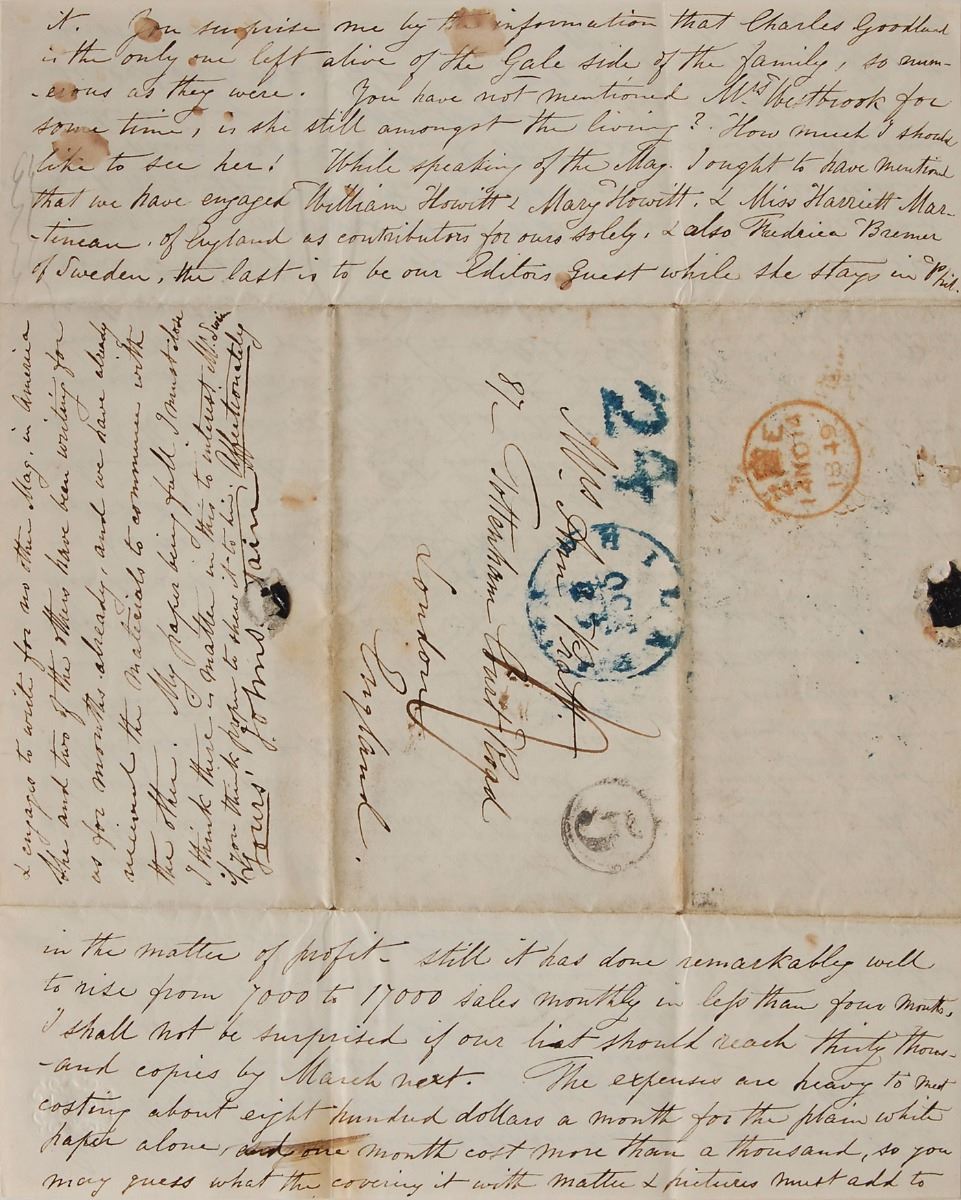 it. You surprise me by the information that Charles Goodlued
is the only one left alive of the Gale side of the family, so num-
-erous as they were. You have not mentioned Mrs Westbrook for
some time, is she still amongst the living? How much I should
like to see her! While speaking of the Mag. I ought to have mention
that we have engaged William Howitt & Mary Howitt, & Miss Harriett Mar-
-tineau, of England as contributors for ours solely, & also Fredrica Bremer
of Sweden, the last is to be our Editors Guest while she stays in Phil.
& engages to write for no other Mag. in America
She and two of the others have been writing for
us for months already, and we have already
received the materials to commence with
the other. My paper being full I must close
I think there is matter in this to interest Mr.
if you think proper to shew it to him. Affectionately
Yours, John Sartain
Mrs Ann Pratt
87 Tottenham Court Road
London
England.
24
PHILA
5
14 NO 14
1849
in the matter of profit - still it has done remarkably well
to rise from 7000 to 17000 sales monthly in less than four months,
I shall not be surprised if our list should reach thirty thous-
-and copies by March next. The expenses are heavy to meet
costing about eight hundred dollars a month for the plain white
paper alone, and one month cost more than a thousand, so you
may guess what the covering it with matter & pictures must add to